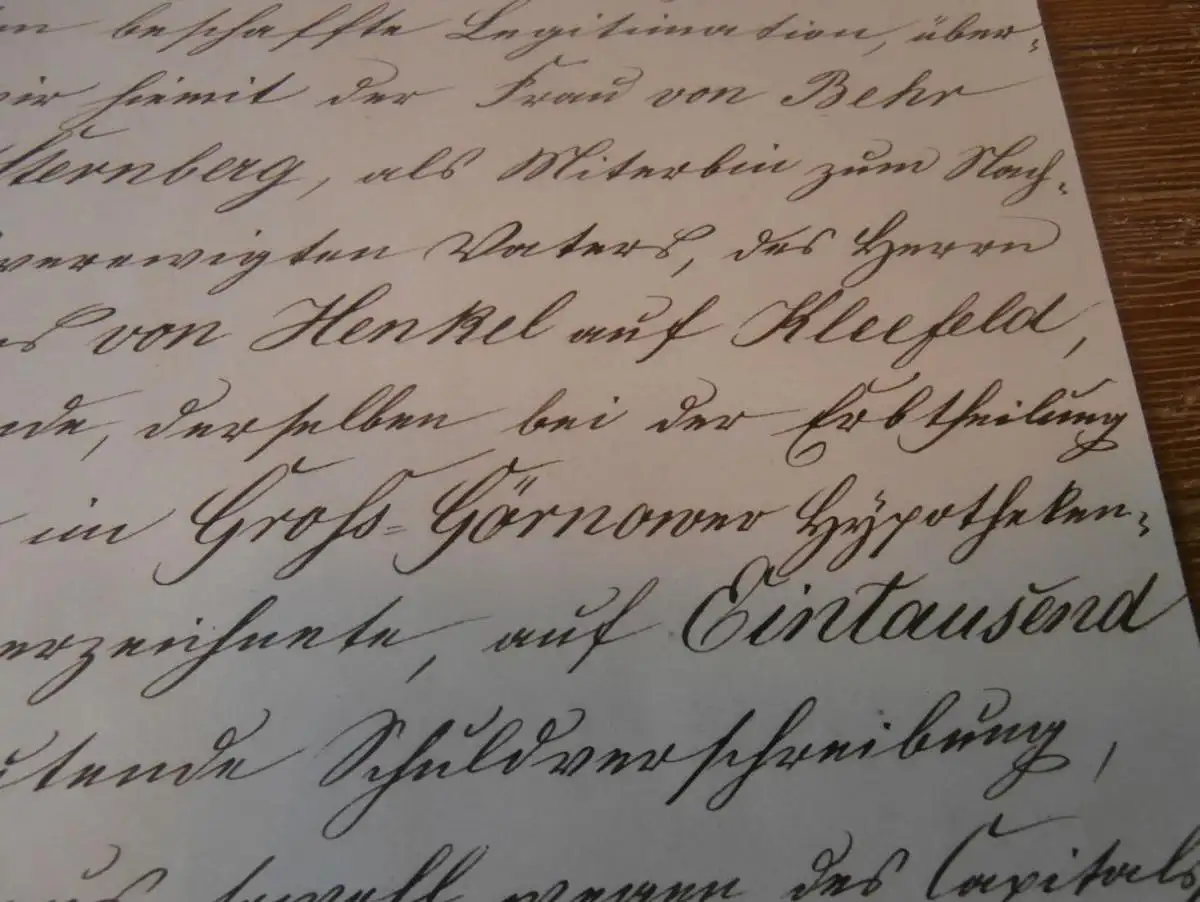 beschaffte Legitimation, über-
wir hiemit der Frau von Behr
Sternberg, als Miterbin zum Nach-
verewigten Vaters, des Herrn
von Henkel auf Kleefeld,
derselben bei der Erbtheilung
im Groß-Görnower Hypotheken-
erzeichnete, auf Eintausend
utende Schuldverschreibung,
sowohl wegen des Capitals